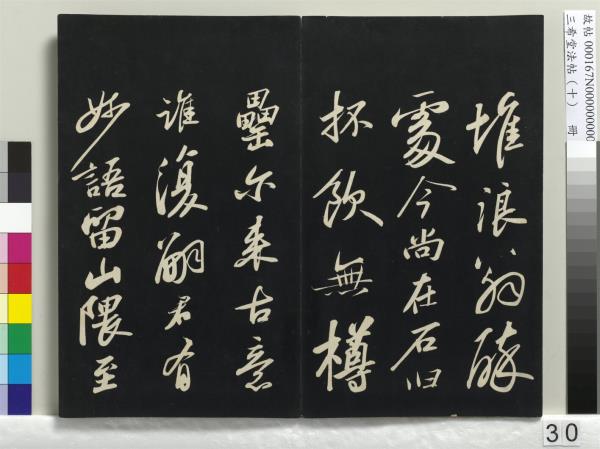 堆浪翁醉
處今尚在石臼
抔飲無樽
罍尔来古意
誰復嗣君有
妙語留山隈至
故帖 000167N000000000
三希堂法帖(十) 冊
30